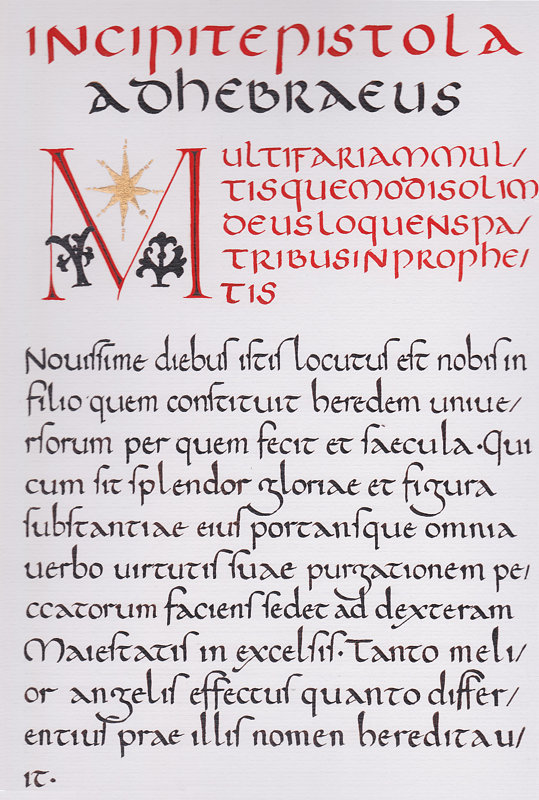 INCIPITEPISTOLA
ADHEBRAEUS
MULTIFARIAMMUL/
TISQUEMODISOLIM
DEUSLOQUENSPA/
TRIBUSINPROPHE/
TIS
Nouissime diebus istis locutus est nobis in
filio quem constituit heredem uniue/
rsorum per quem fecit et saecula. Qui
cum sit splendor gloriae et figura
substantiae eius portansque omnia
uerbo uirtutis suae purgationem pe/
ccatorum faciens sedet ad dexteram
Maiestatis in excelsis. Tanto meli/
or angelis effectus quanto differ/
entius prae illis nomen hereditau/
it.